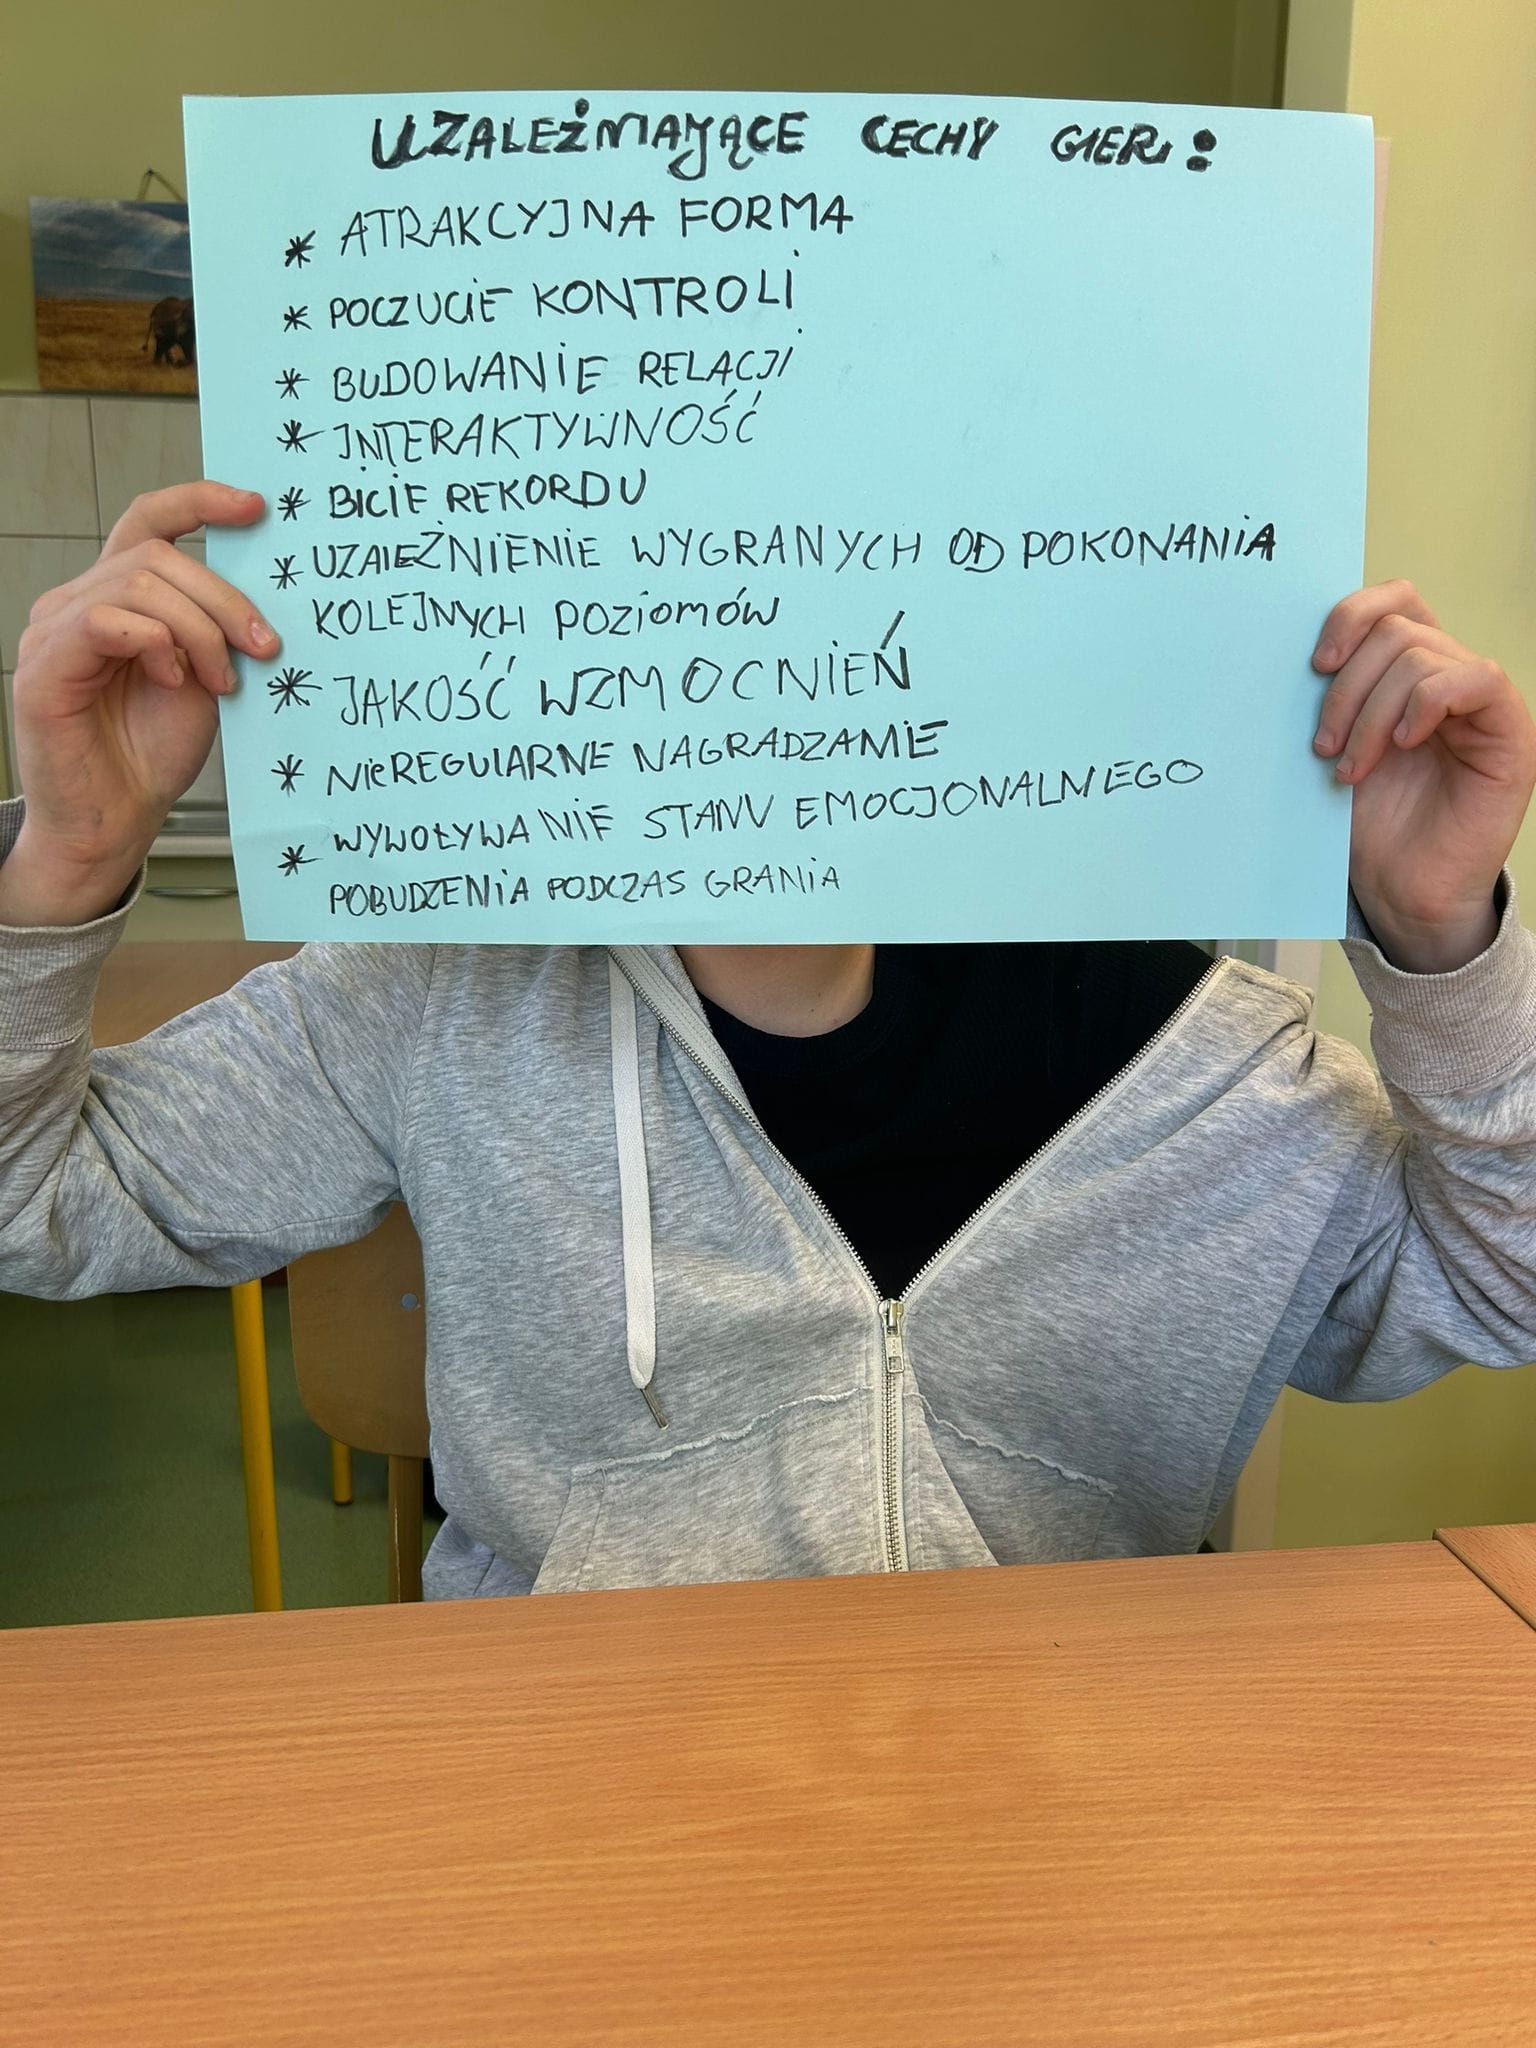 UZALEŻNIAJĄCE CECHY GIER:
* ATRAKCYJNA FORMA
* POCZUCIE KONTROLI
* BUDOWANIE RELACJI
* INTERAKTYWNOŚĆ
* BICIE REKORDU
* UZALEŻNIENIE WYGRANYCH OD POKONANIA
KOLEJNYCH POZIOMÓW
* JAKOŚĆ WZMOCNIEŃ
* NIEREGULARNE NAGRADZANIE
* WYWOŁYWANIE STANU EMOCJONALNEGO
POBUDZENIA PODCZAS GRANIA